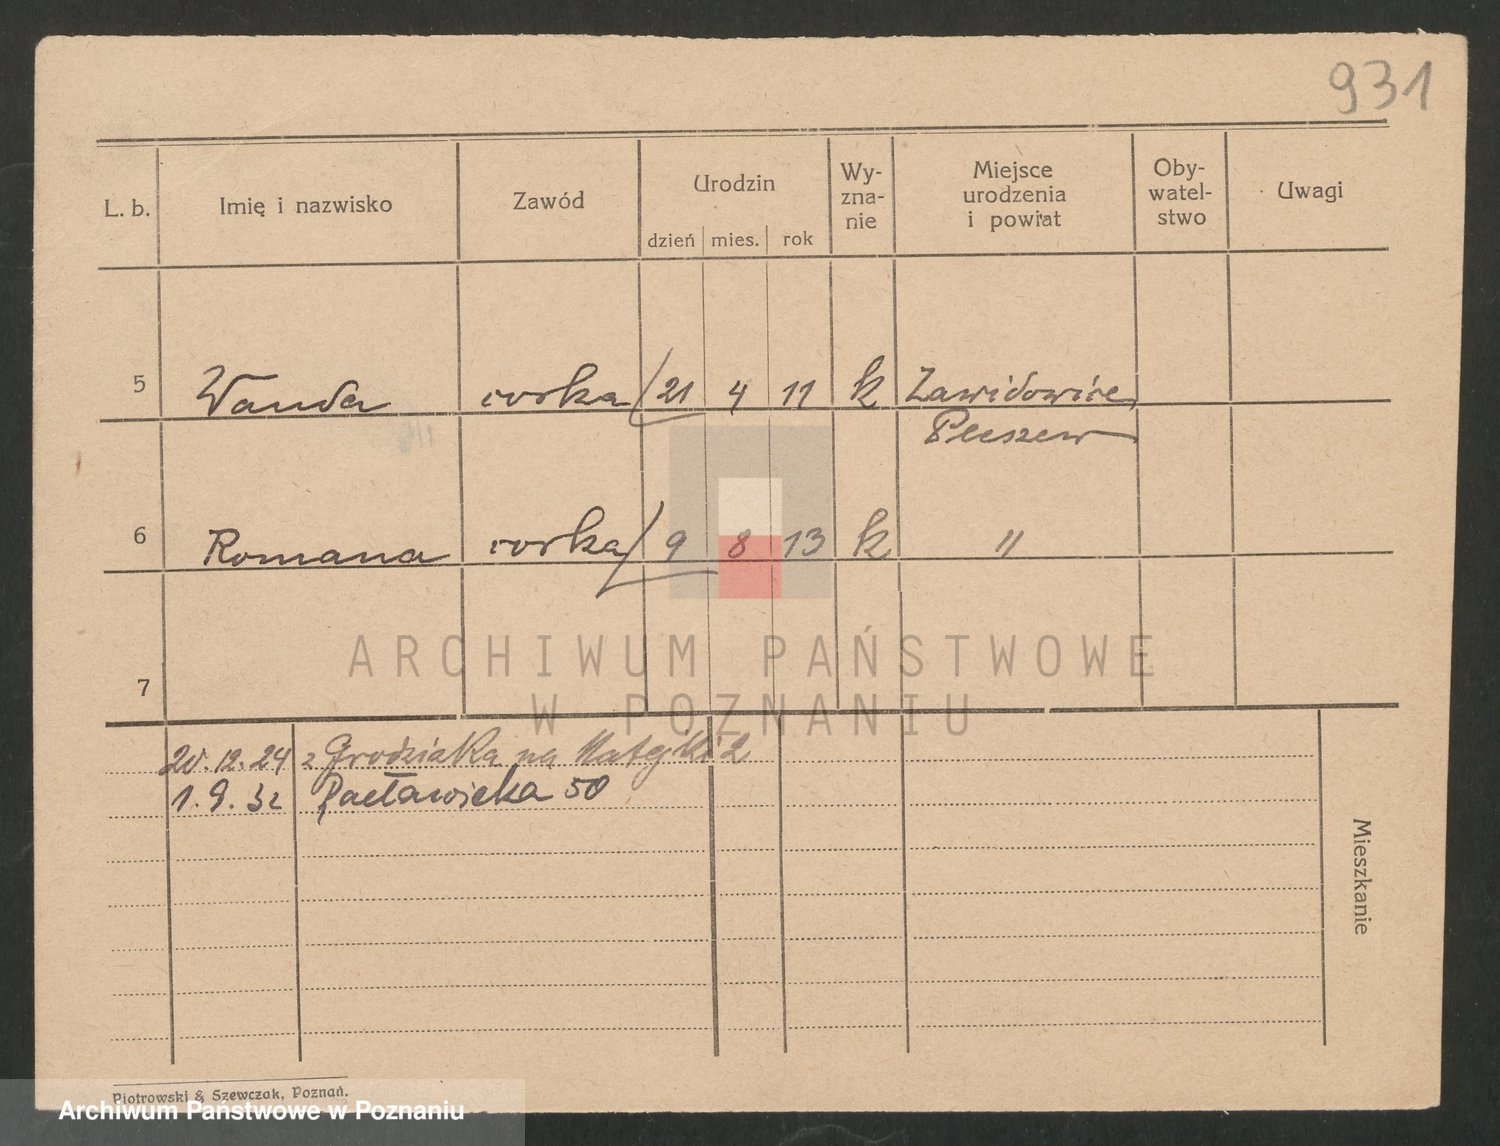 931
L. b. Imię i nazwisko Zawód Urodzin Wy-zna-nie Miejsce urodzenia i powiat Oby-watel-stwo Uwagi
dzień mies. rok
5 Wanda corka 21 4 11 k Zawidowice,
Pleszew
6 Romana corka 9 8 13 k "
7
ARCHIWUM PAŃSTWOWE
W POZNANIU
20.12.24 z Grodziska na Matejki 2
1.9.32 Racławicka 50
Mieszkanie
Piotrowski & Szewczak, Poznań.
Archiwum Państwowe w Poznaniu